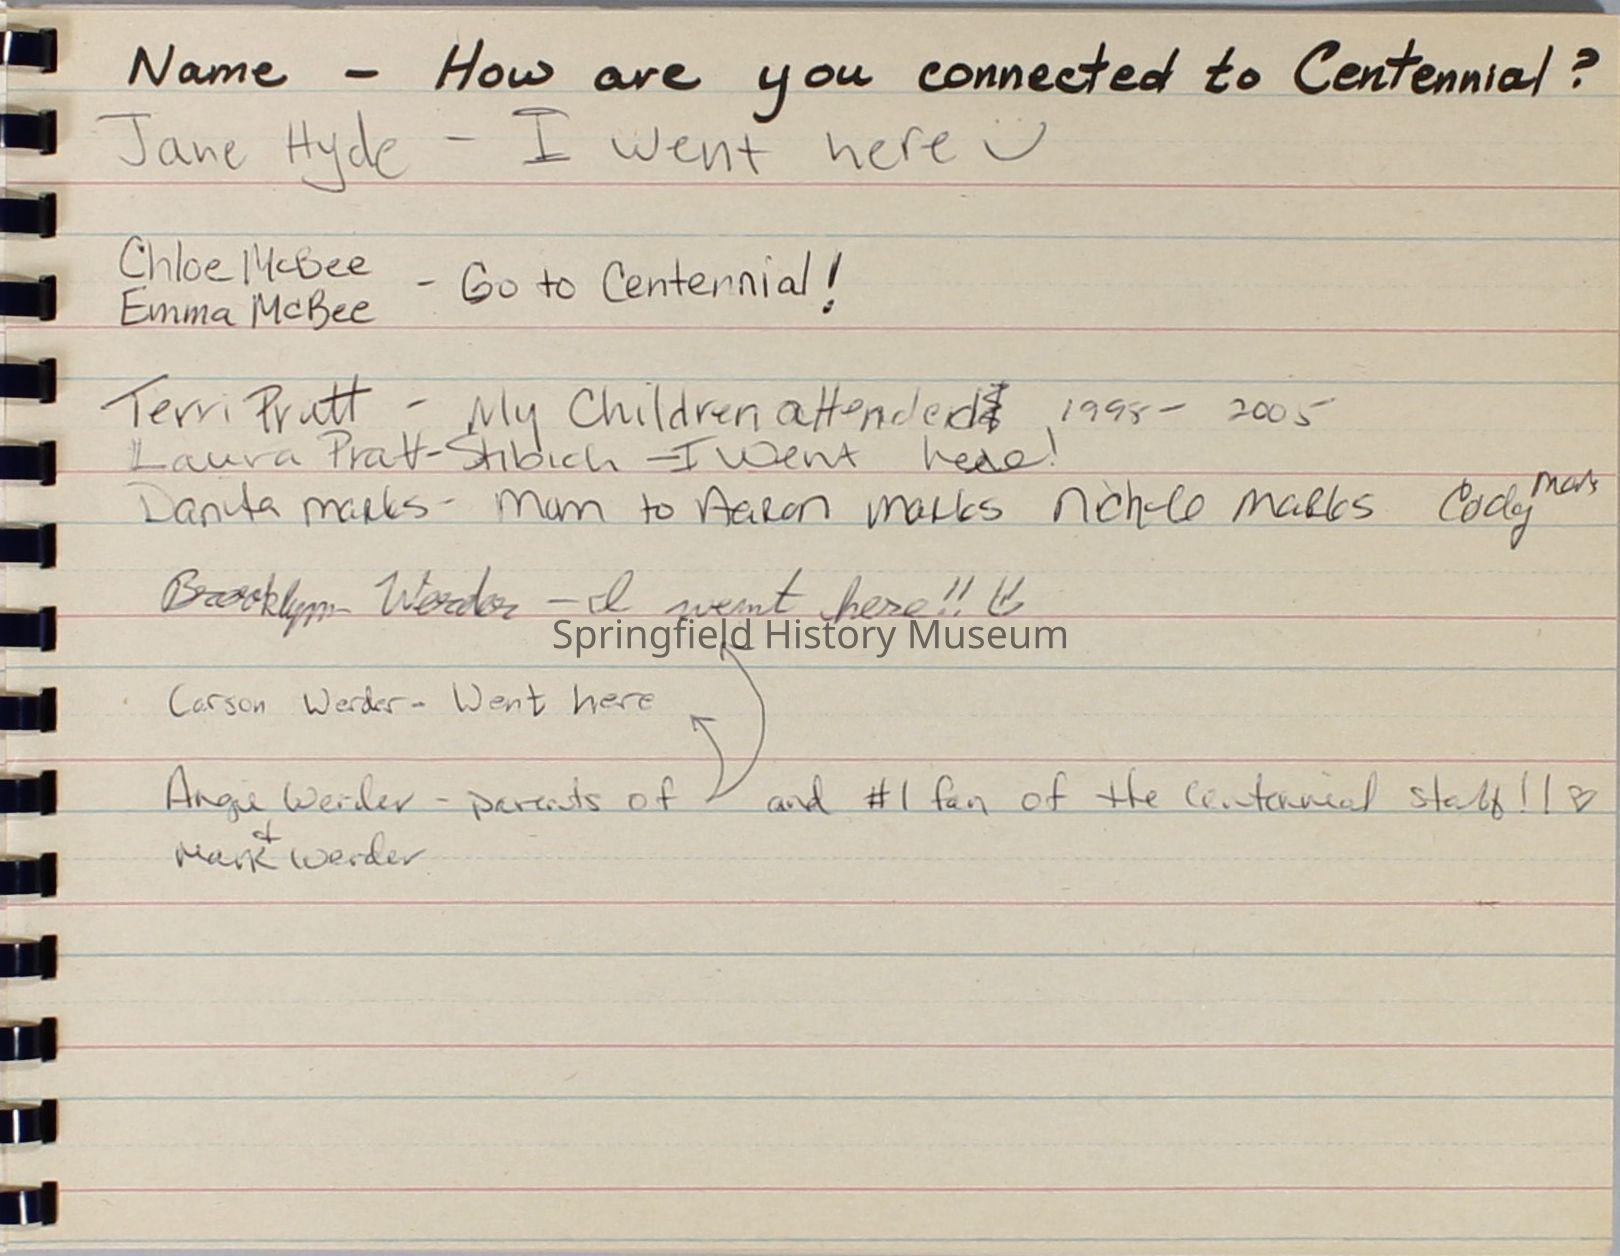 Name - How are you connected to Centennial?
Jane Hyde - I went here
Chloe McBee
Emma McBee - Go to Centennial!
Terri Pratt - My Children attended 1998 - 2005
Laura Pratt-Stibich - I went here!
Danita marks - Mom to Aaron marks Nichole Marks Cody Marks
Brooklynn Werder - I went here!!
Springfield History Museum
Carson Werder - Went here
Angie Werder - parents of and #1 fan of the Centennial staff!! ♡
&
Mark Werder